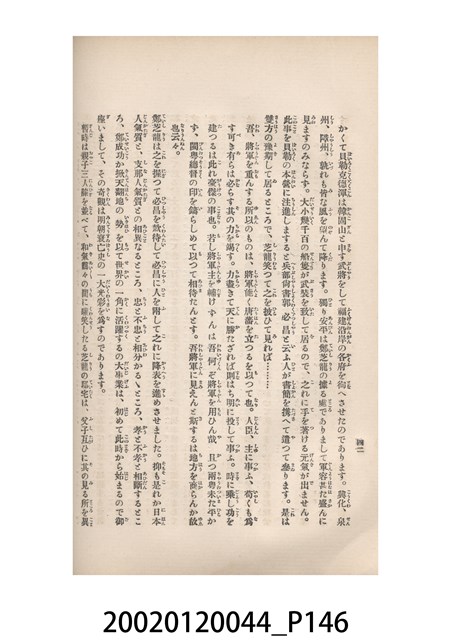 かくて貝勒克德渾は韓固山と申す武將をして福建沿岸の各府を徇へさせたのであります。興化、泉
州、障州、孰れも皆な風を望んで降ります。獨り安平は鄭芝龍の據る處でありまして軍容甚だ盛んに
見ますのみならず。大小幾千百の船隻が武裝を致して居るので、之れに手を著ける元氣が出ません。
此事を貝勒の本營に注進しますると兵部尙書郭必昌と云ふ人が書簡を携へて遣つて參ります。是は
雙方の豫期して居るところで、芝龍笑つて之を披ひて見れば………
吾、將軍を重んずる所以のものは、將軍能く唐藩を立つるを以つて也。人臣、主に事ふ、苟くも爲
す可き有らは必らす其の力を竭す。力盡きて天に勝たざれば則はち明に投して事ふ。時に乘し功を
建つるは此れ豪傑の事也。若し將軍主を輔けずんは吾何ぞ將軍を用ひん哉 且つ兩粤未た平か
ず、閩粤總督の印を鑄らしめて以つて相待たんとす。吾將軍に見えんと欲するは地方を商らんか故
也云々。
鄭芝龍は之を探つて必昌を欵待して必昌に人を附して之れに降表を進めさせました。抑も是れか日本
人氣質と、支那人氣質との相異なるところ、忠と不忠と相分かるゝところ、孝と不孝と相關するとこ
ろ、鄭成功か無天翻地の勢を以て世界の一角に活躍するの大事業は、初めて此時から始まるので御
座いまして、その奇觀は明朝衰亡史の一大光彩を爲すのであります。
暫時は親子三人膝を並べて、和氣靄々の間に嬉笑したる芝龍の邸宅は、父子互ひに其の見る所を異
四二
20020120044_P146